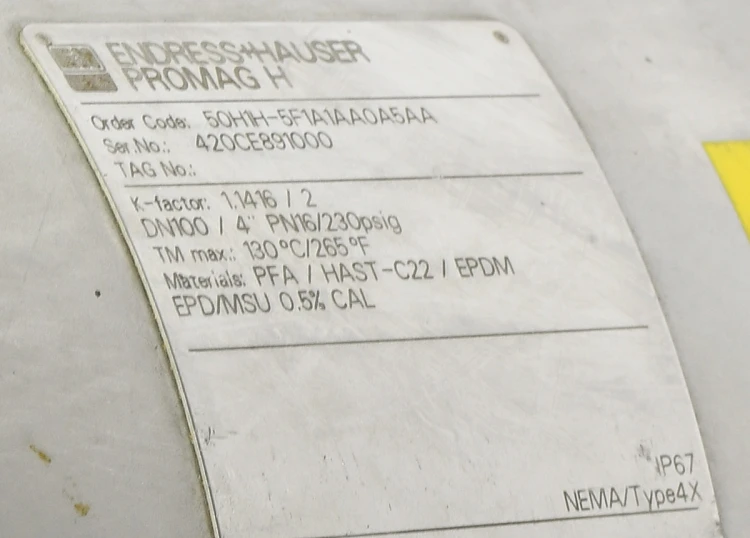 ENDRESS+HAUSER
PROMAG H
Order Code: 50H1H-5F1A1AA0A5AA
Ser.No.: 420CE891000
TAG No.:
K-factor: 1.1416 / 2
DN100 / 4" PN16/230psig
TM max.: 130°C/265°F
Materials: PFA / HAST-C22 / EPDM
EPD/MSU 0.5% CAL
IP67
NEMA/Type4X